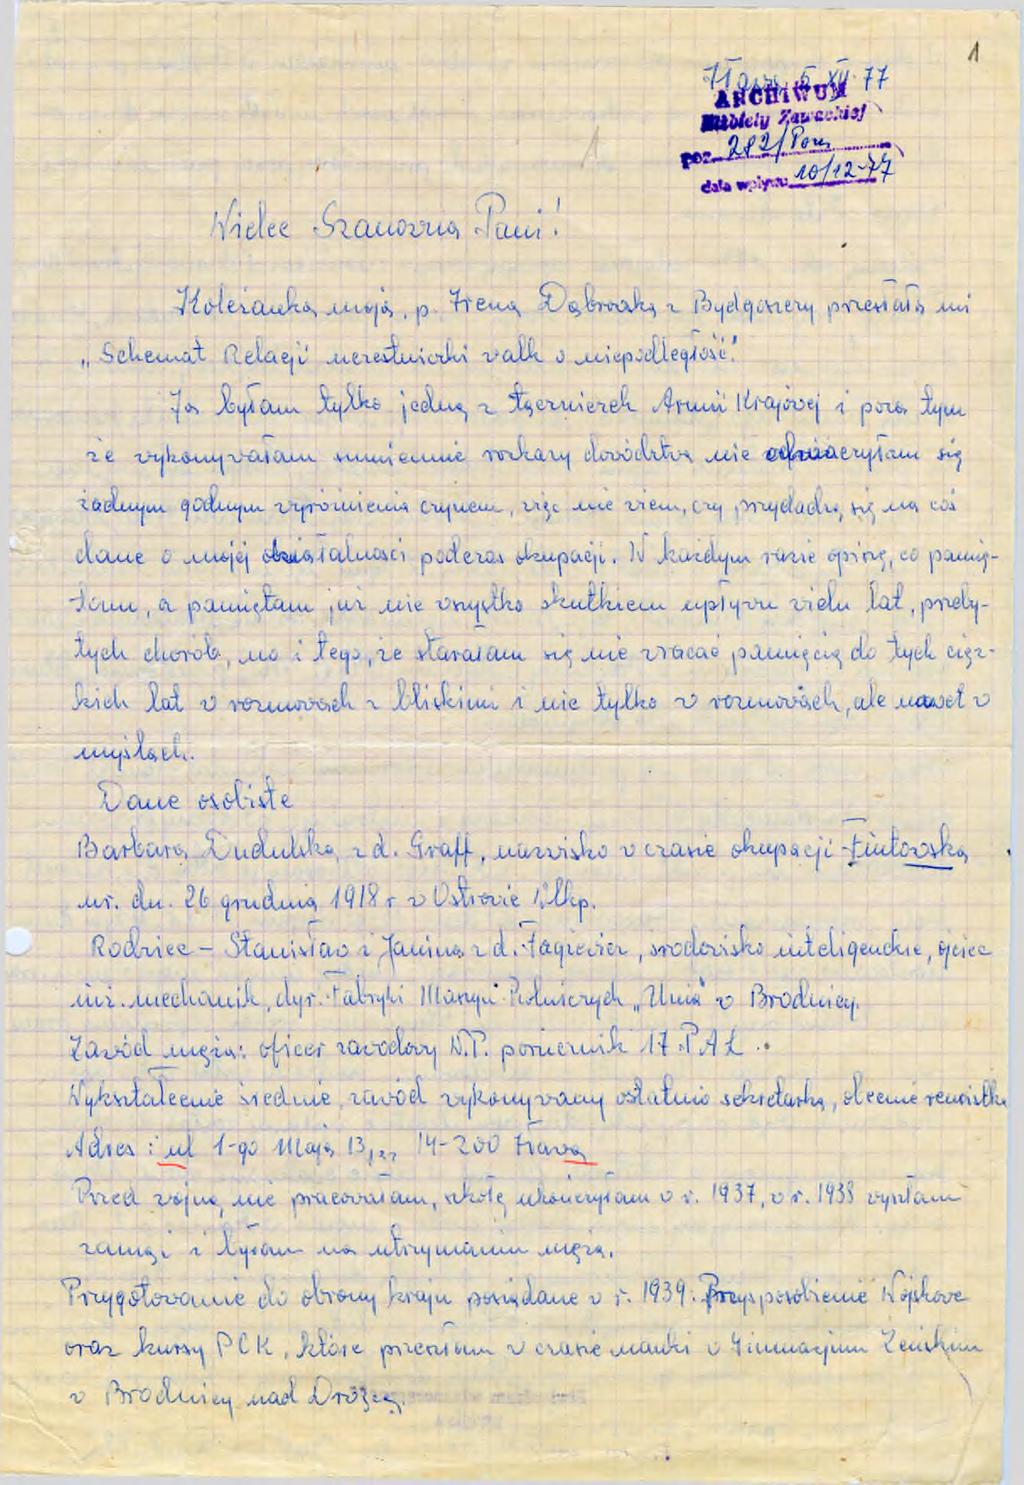 1
Iława, 5 XII 77
ARCHIWUM
Elżbiety Zawackiej
poz. 282/Pom
data wpływu 10/12-77
1
Wielce Szanowna Pani!
Koleżanka moja, p. Irena Dąbrowska z Bydgoszczy przesłała mi
„Schemat Relacji uczestniczki walk o niepodległość."
Ja byłam tylko jedną z łączniczek Armii Krajowej i poza tym
że wykonywałam sumiennie rozkazy dowództwa nie odznaczyłam się
żadnym godnym wyróżnienia czynem, więc nie wiem, czy przydadzą się na coś
dane o mojej działalności podczas okupacji. W każdym razie opiszę, co pamię-
tam, a pamiętam już nie wszystko skutkiem upływu wielu lat, przeby-
tych chorób, no i tego, że starałam się nie wracać pamięcią do tych cięż-
kich lat w rozmowach z bliskimi i nie tylko w rozmowach, ale nawet w
myślach.
Dane osobiste
Barbara Dudulska z d. Graff, nazwisko w czasie okupacji Fiutowska
ur. dn. 26 grudnia 1918 r w Ostrowie Wlkp.
Rodzice – Stanisław i Janina z d. Fagiewicz, środowisko inteligenckie, ojciec
inż. mechanik, dyr. Fabryki Maszyn Rolniczych „Unia" w Brodnicy.
Zawód męża: oficer zawodowy W.P. porucznik 17 PAL.
Wykształcenie średnie, zawód wykonywany ostatnio sekretarka, obecnie rencistka
Adres: ul 1-go Maja 13, 14-200 Iława
Przed wojną nie pracowałam, szkołę ukończyłam w r. 1937, w r. 1938 wyszłam
zamąż i byłam na utrzymaniu męża.
Przygotowanie do obrony kraju posiadane w r. 1939: Przysposobienie Wojskowe
oraz kursy PCK, które przeszłam w czasie nauki w Gimnazjum Żeńskim
w Brodnicy nad Drwęcą.